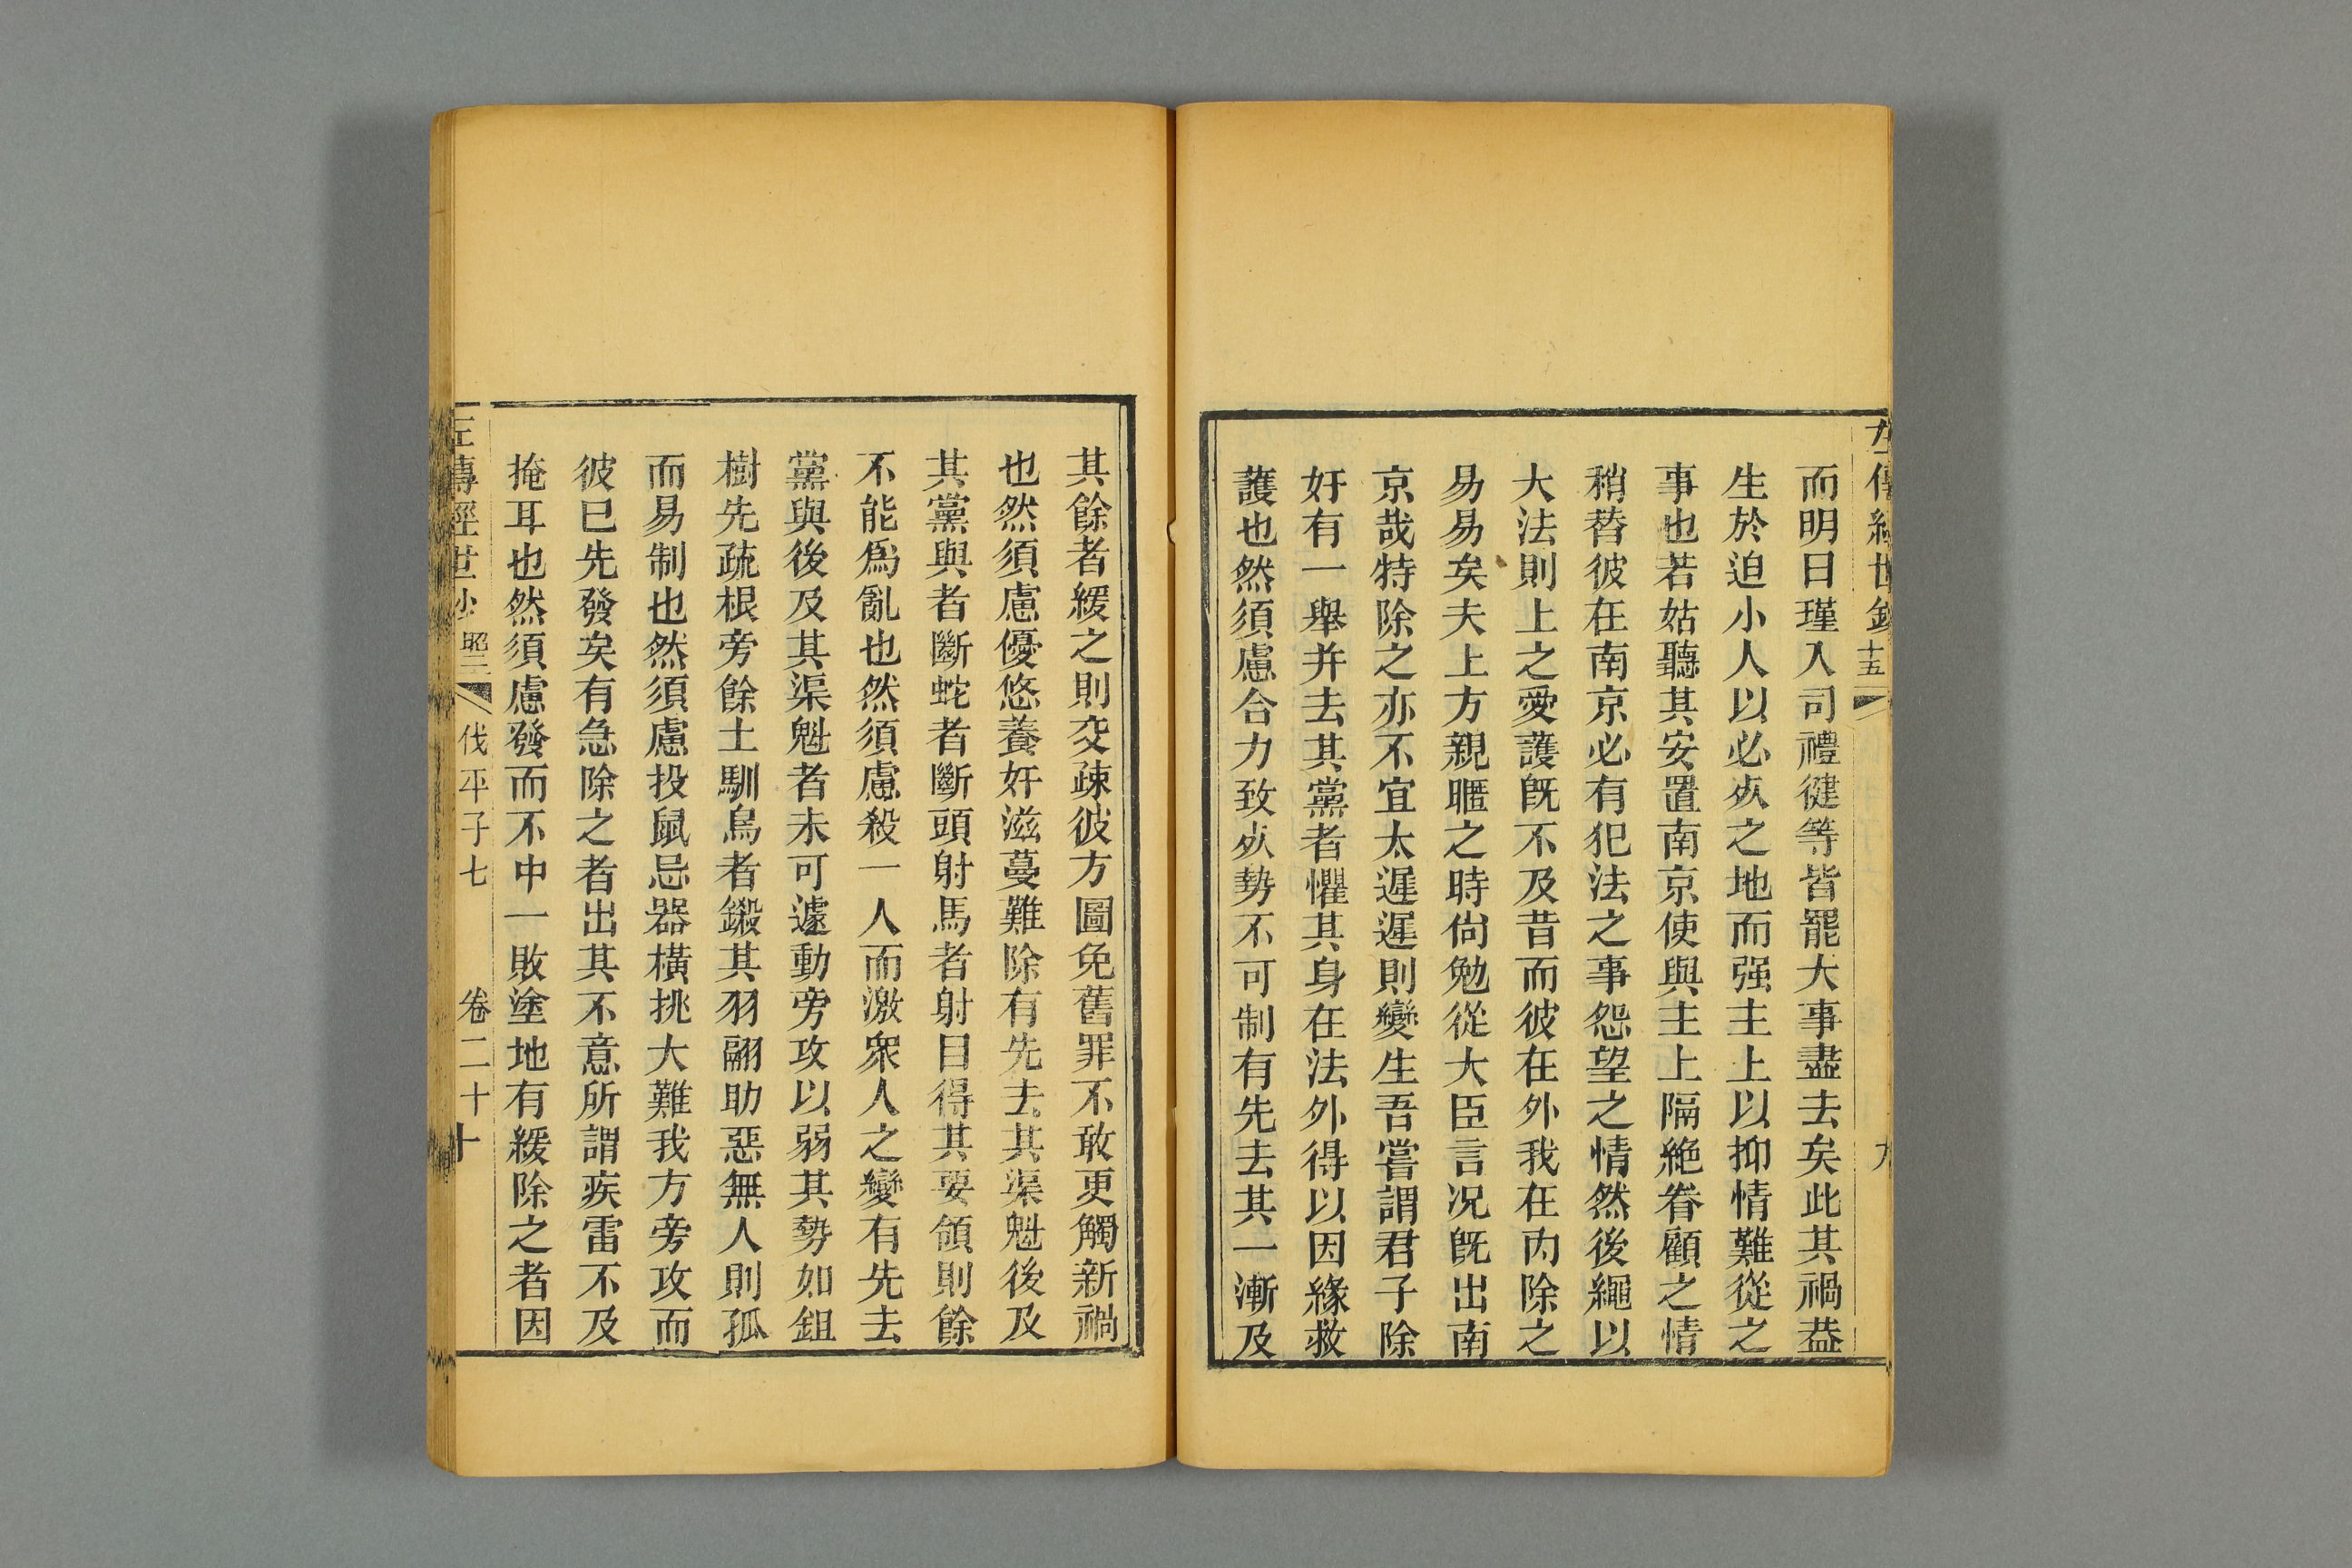 而明日瑾入司禮健等皆罷大事盡去矣此其禍葢
生於迫小人以必㱙之地而强主上以抑情難從之
事也若姑聽其安置南京使與主上隔絶眷顧之情
稍替彼在南京必有犯法之事怨望之情然後繩以
大法則上之愛護旣不及昔而彼在外我在內除之
易易矣夫上方親暱之時尙勉從大臣言况旣出南
京哉特除之亦不宜太遲遲則變生吾嘗謂君子除
奸有一舉并去其黨者懼其身在法外得以因緣救
護也然須慮合力致㱙勢不可制有先去其一漸及
其餘者緩之則交疎彼方圖免舊罪不敢更觸新禍
也然須慮優悠養奸滋蔓難除有先去其渠魁後及
其黨與者斷蛇者斷頭射馬者射目得其要領則餘
不能爲亂也然須慮殺一人而激衆人之變有先去
黨與後及其渠魁者未可遽動旁攻以弱其勢如鉏
樹先疏根旁餘土馴鳥者鎩其羽翮助惡無人則孤
而易制也然須慮投鼠忌器橫挑大難我方旁攻而
彼已先發矣有急除之者出其不意所謂疾雷不及
掩耳也然須慮發而不中一敗塗地有緩除之者因
左傳經世鈔 昭二 伐平子七 卷二十 十